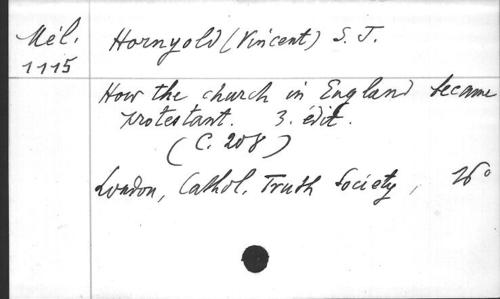 Mél.
1115
Hornyold (Vincent) S. J.
How the church in England became
protestant. 3. édit.
(C. 208)
London, Cathol. Truth Society, 16°